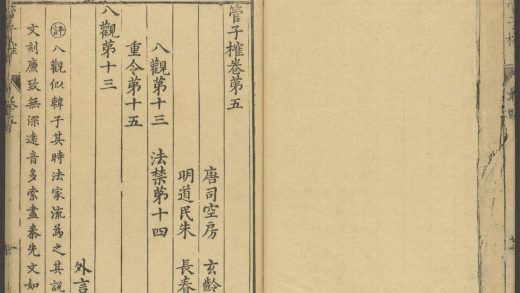 管子榷卷第五
唐司空房 玄齡
明道民朱 長春
八觀第十三 法禁第十四
重令第十五
八觀第十三
外言
評八觀似韓子其時法家流為之其說
文刻廉致無深遠音多索盡秦先文如